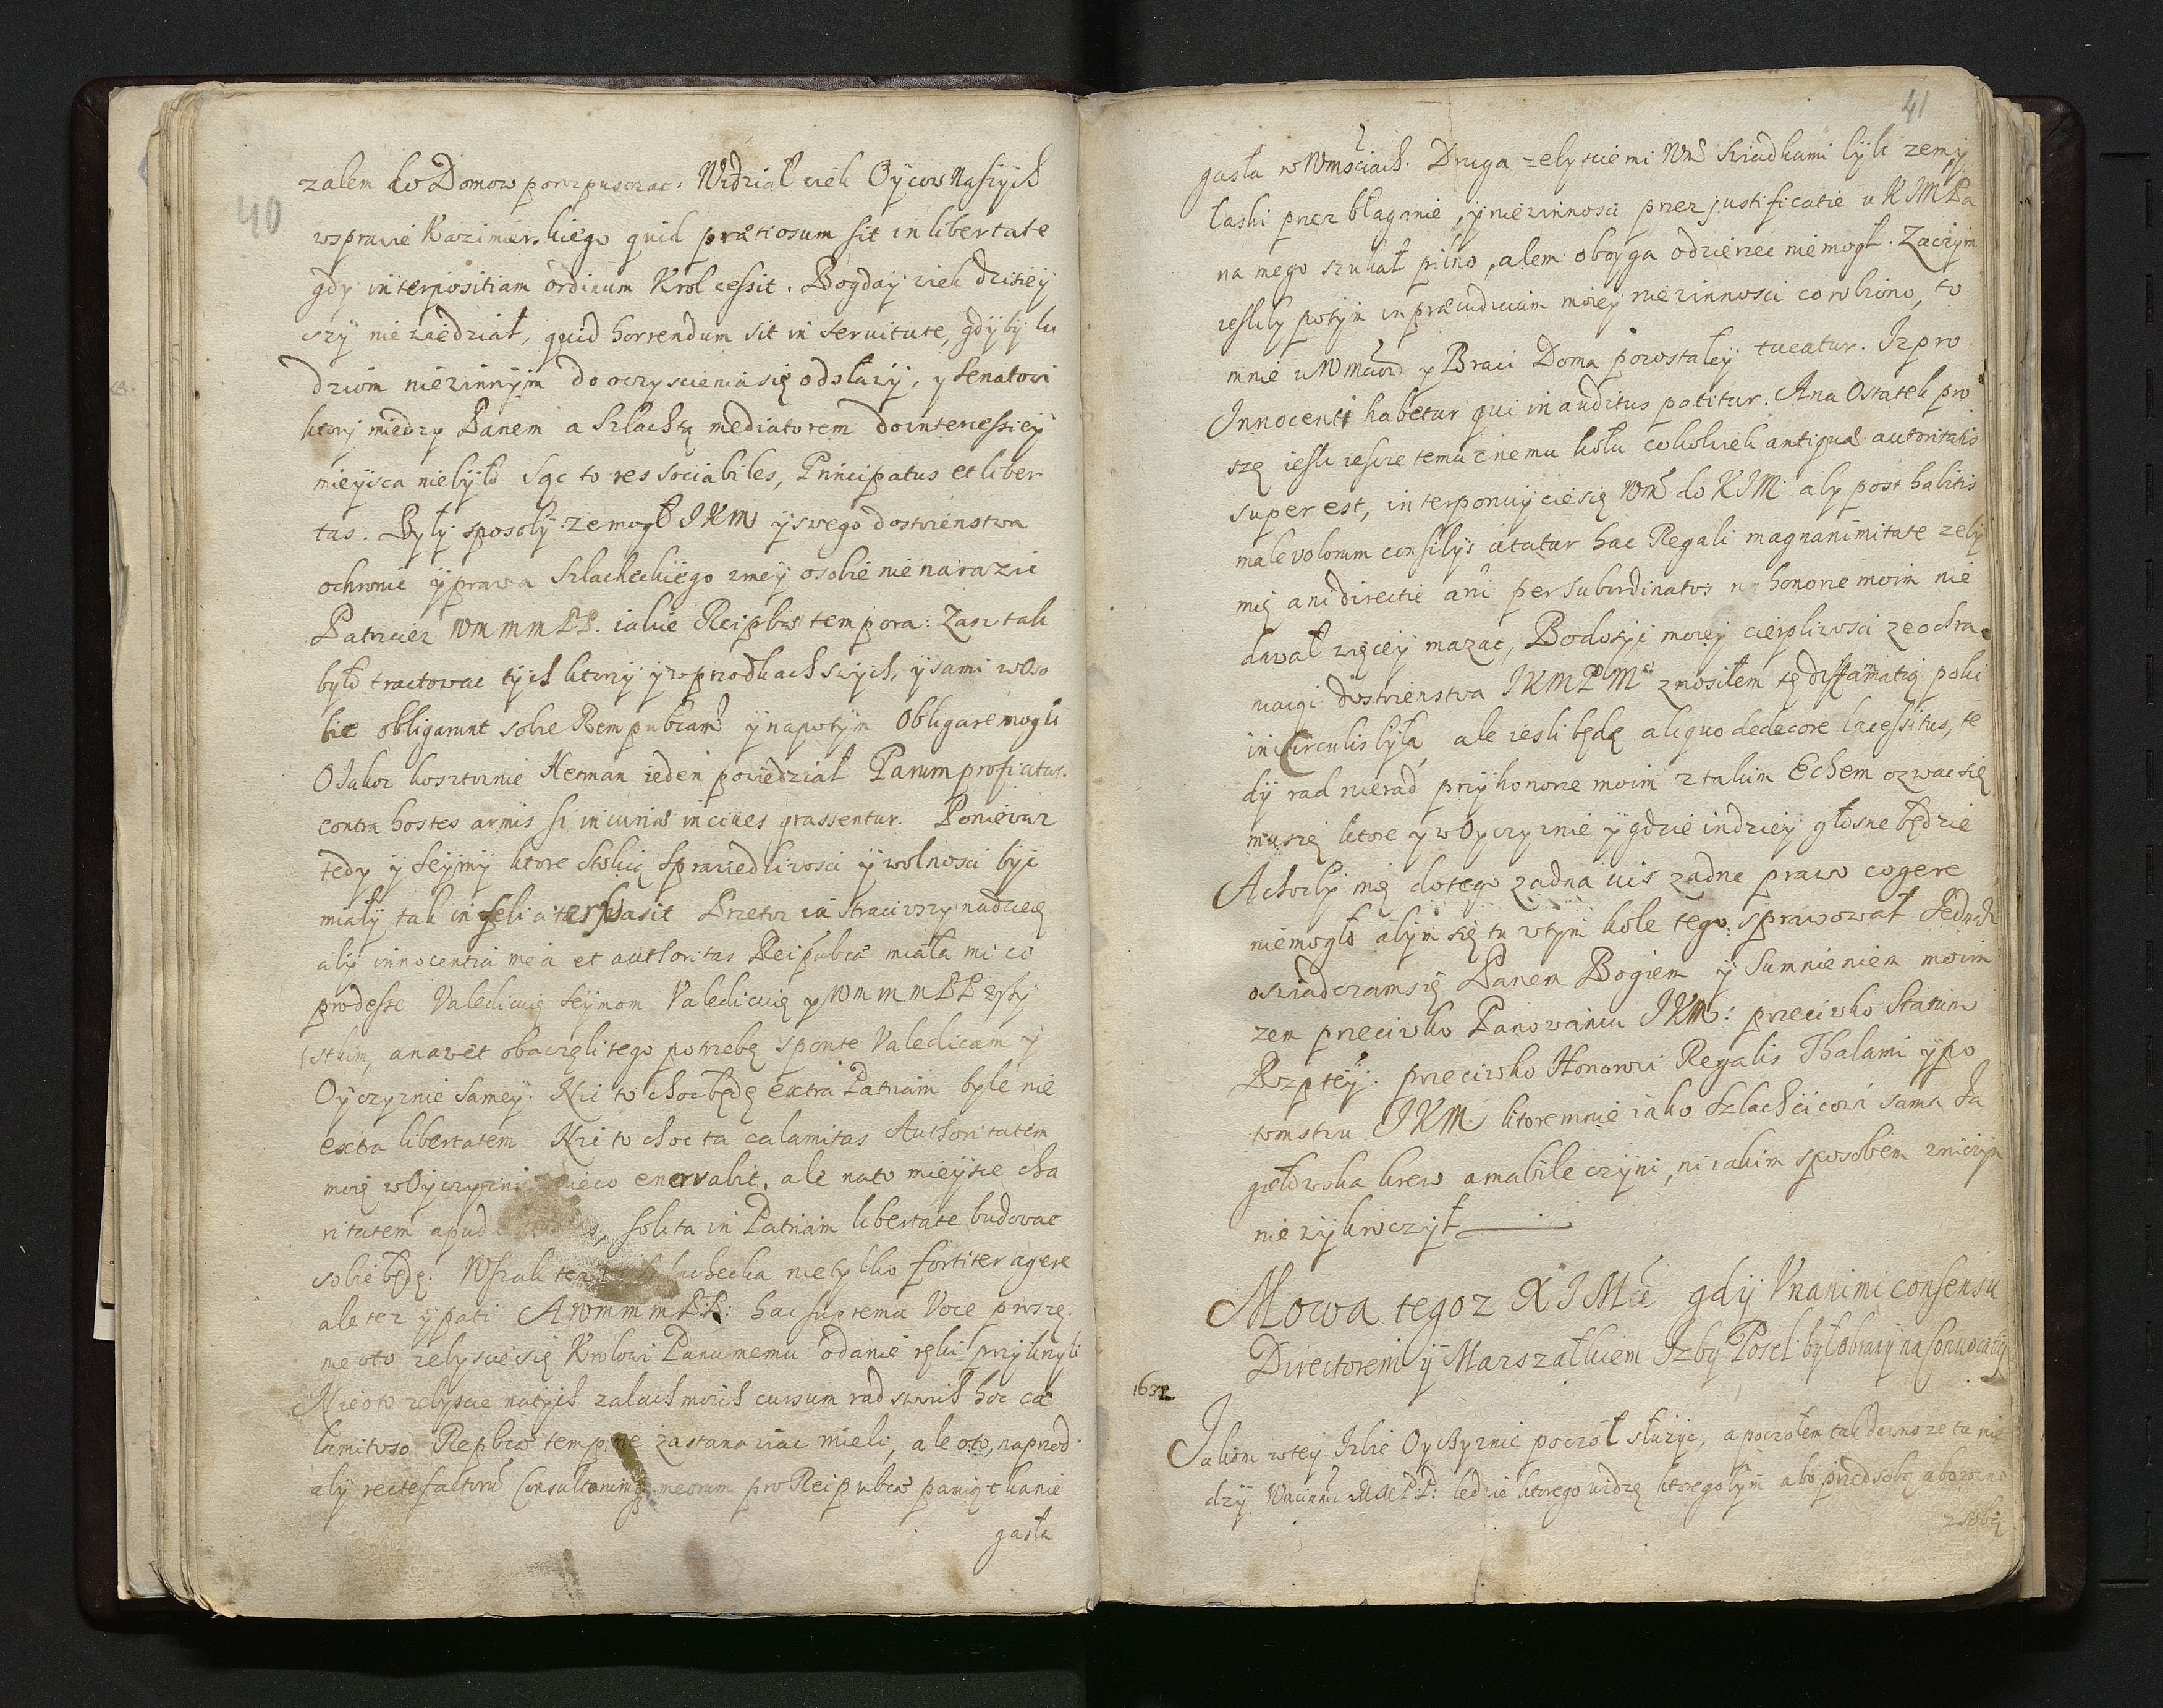 40
zalem do Domow porozpuszczac. Widział wiek Oycow Naszych
wsprawie Kazimierskiego quid prætiosum sit in libertate
gdy interpositiam ordinum Krol cessit. Bogday wiek dzisiey
szy nie wiedział, quid horrendum sit in seruitute, gdyby lu
dziom niewinnym do oczyscienia się odsłaży, y Senatowi
ktory miedzy Panem a Szlachtą mediatorem do interessiey
mieysca niebyło Sąc to res sociabiles, Principatus et liber
tas. Były sposoby ze mogł JKM y swego dostoienstwa
ochronic y prawa Szlacheckiego wmey osobie nie narazic
Patrciez WMMMPP. iakie Reipbcæ tempora: Zasz tak
było tractowac tych ktorzy y w przodkach swych, y sami w Oso
bie obligarunt sobie Rempubcam y napotym Obligare mogli
O Jakoz kosztownie Hetman ieden powiedział Parum proficitur
contra hostes armis si incuria in ciues grassentur. Poniewaz
tedy y Seymy ktore Stolicą Sprawiedliwosci y wolnosci być
miały tak infeliciter Przetoz ia straciwszy nadzieię
aby innocentia mea et authoritas Reipubcæ miała mi co
prodesse Valedicuię Seymom Valedicuię y WMMMPP wszy
stkim, anawet obaczęli tego potrzebę sponte Valedicam y
Oyczyznie samey. Nic to choc będę extra Patriam byle nie
extra libertatem Nic to choc ta calamitas Authoritatem
moię w Oyczyzni nieco enervabit, ale nato mieysce cha
ritatem apud solita in Patriam libertate budowac
sobie będę. Wszak ten nie tylko fortiter agere
ale tez y pati A WMMMPP: hac suprema Voce proszę.
nie oto zebyscie się Krolowi Panu memu o danie ręki przykrzyli
Nie oto zebyscie natych zalach moich cursum rad swoich hoc ca
lamitoso Repbcæ tempore zastanawiac mieli, ale oto, naprzod
aby rectefactorum Consultorumq; meorum pro Reipubca pamiątka nie
gasła
41
gasła w WMsciach. Druga zebyscie mi WM swiadkami byli zemy
łaski przez błaganie, y niewinnosci przez justificatie u KJMPa
na mego szukał pilno, alem oboyga odzierzec niemogł. Zaczym
iesliby potym in præiudicium moiey niewinnosci co robiono, to
mnie u WMciow y Braci Doma powstałey tueatur. Iz pro
Innocenti habetur qui inauditus patitur. A na Ostatek pro
szę iesli ieszcze temu cnemu kołu cokolwiek antiquæ autoritatis
super est, interponuycie się WM do KJM aby post habitis
malevolorum consilijs utatur hac Regali magnanimitate zeby
mię ani directe ani per subordinatos na honorze moim nie
dawał więcey mazac, Bo dosyć moiey cierpliwosci ze ochra
niaiąc dostoienstwa JKMPM znosiłem tę diffamatią poki
in Circulis była, ale iesli będę aliquo dedecore lacessitus, te
dy rad nierad przy honorze moim z takim Echem ozwac się
muszę ktore y w Oyczyznie y gdzie indziey głosne będzie
A choćby mię do tego zadna vis zadne prawo cogere
niemogło abym się tu wtym kole tego sprawował Jednak
oswiadczam się Panem Bogiem y Sumnieniem moim
zem przeciwko Panowaniu JKM: przeciwko Stanow
Rzptey: przeciwko Honorowi Regalis Thalami y po
tomstwu JKM ktore mnie iako Szlachcicowi sama Ja
giełowska krew amabile czyni, niiakim sposobem wniczym
nie wykroczył
Mowa tegoz XJMci gdy Vnanimi consensu
Directorem y Marszałkiem Izby Posel: był obrany na Convocatij
1632
Jakom wtey Izbie Oyczyznie począł słuzyc, a począłem tak dawno ze tu mie
dzy Waciami MMPP: ledwie ktorego widzę ktoregobym abo przed sobą abo rowno
z sobą